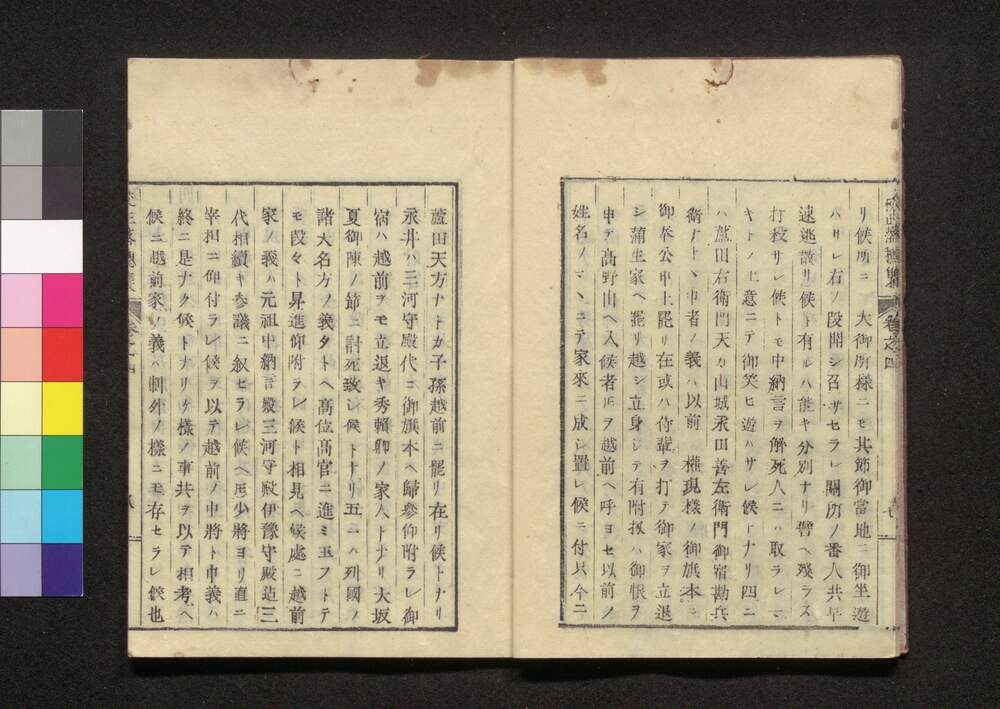 リ候所ニ 大御所樣ニモ其節御當地ニ御坐遊
ハサレ右ノ段聞シ召サセラレ關所ノ番人共早
速逃散リ候ト有ルハ能キ分別ナリ譬ヘ殘ラス
打殺サレ候トモ中納言ヲ解死人ニハ取ラレマ
キトノ上意ニテ御笑ヒ遊ハサレ候トナリ四ニ
ハ蘆田右衛門天方山城永田善左衛門御宿勘兵
衛ナト丶申者ノ義ハ以前 權現樣ノ御旗本ニ
御奉公申上罷リ在或ハ侍輩ヲ打テ御家ヲ立退
シ蒲生家ヘ罷リ越シ立身シテ有附扱ハ御恨ヲ
申テ高野山ヘ入候者𪜈ヲ越前ヘ呼ヨセ以前ノ
姓名ノマ丶ニテ家來ニ成シ置レ候ニ付只今ニ
蘆田天方ナトカ子孫越前ニ罷リ在リ候トナリ
永井ハ三河守殿代ニ御旗本ヘ歸參仰附ラレ御
宿ハ越前ヲモ立退キ秀賴卿ノ家人トナリ大坂
夏御陳ノ節ニ討死致シ候トナリ五ニハ列國ノ
諸大名方ノ義タトヘ高位高官ニ進ミ玉フトテ
モ段々ト昇進仰附ラレ候ト相見ヘ候處ニ越前
家ノ義ハ元祖中納言殿三河守殿伊豫守殿迠三
代相續キ參議ニ叙セラレ候ヘ𪜈少將ヨリ直ニ
宰相ニ仰付ラレ候ヲ以テ越前ノ中將ト申義ハ
終ニ是ナク候トナリケ樣ノ事共ヲ以テ相考ヘ
候ニ越前家ノ義ハ制外ノ樣ニモ存セラレ候也
卷之四